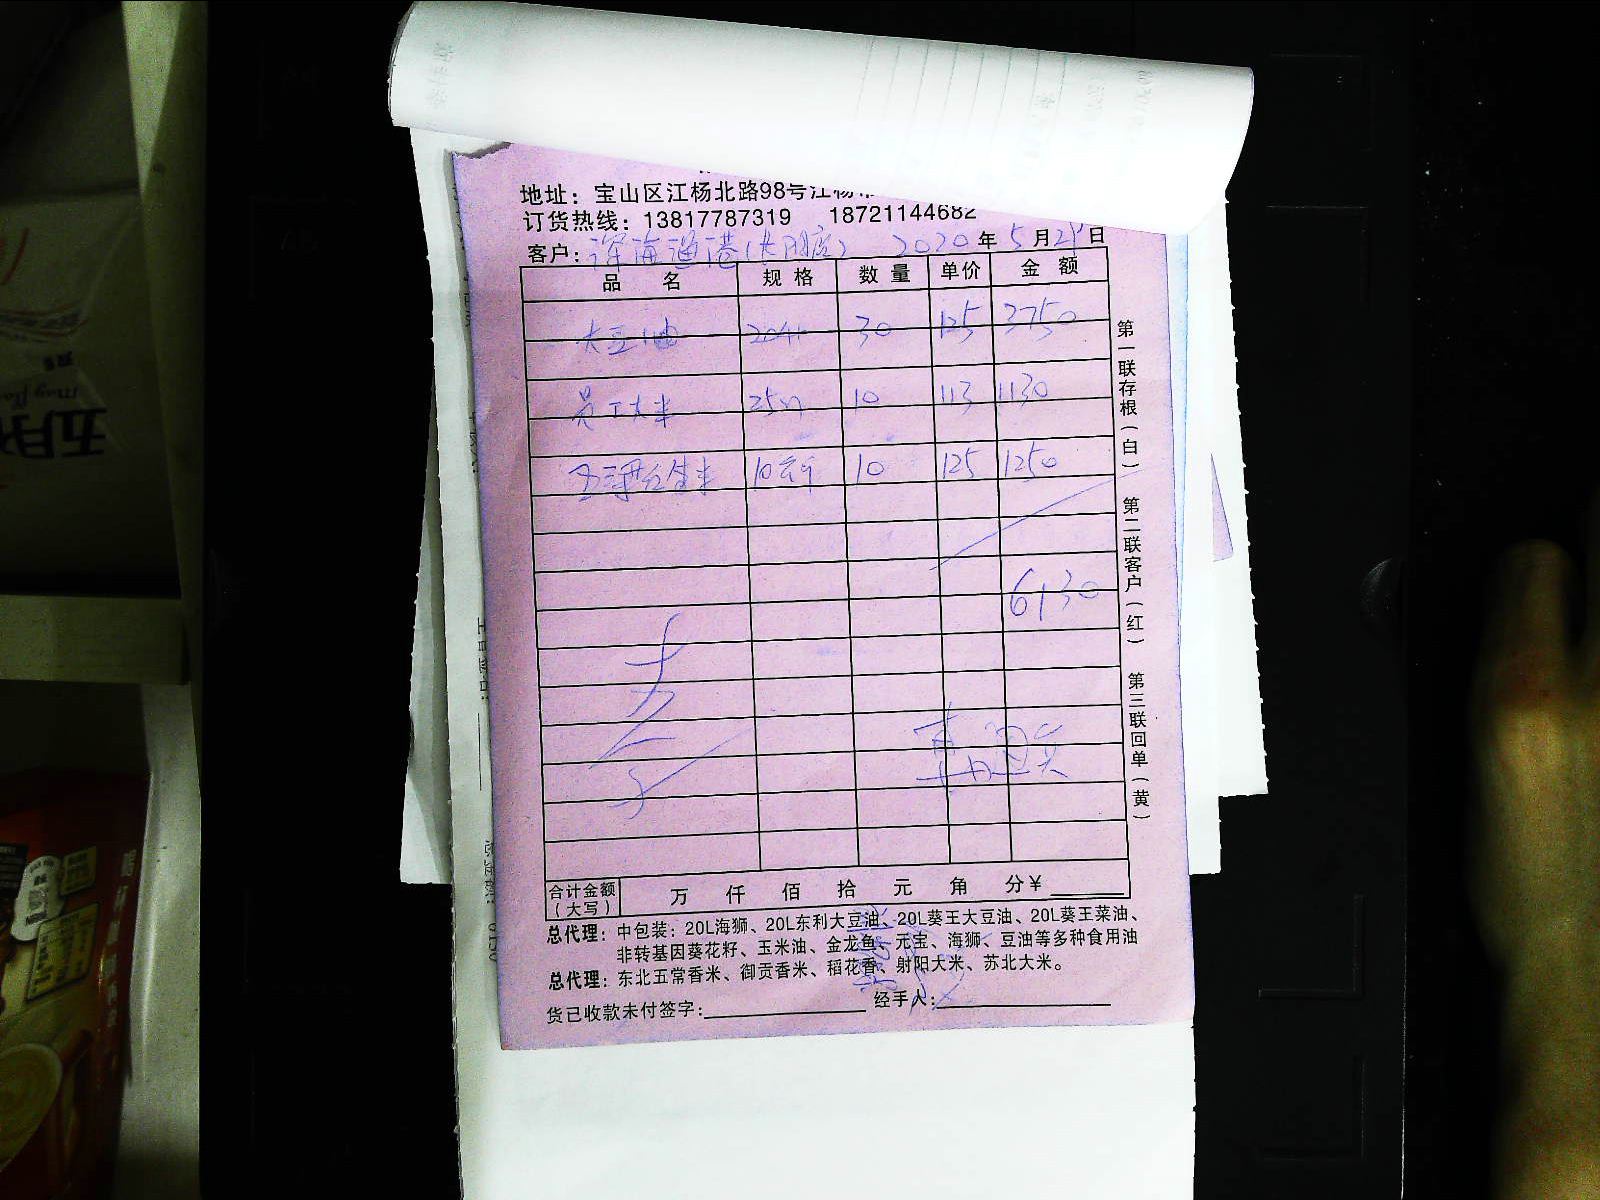 地址：宝山区江杨北路98号江杨
订货热线：13817787319 18721144682
客户：深海渔港 2020年5月29日
品 名 规格 数量 单价 金额
大豆油 30 125 3750
员工大米 25 10 113 1130
10 10 125 1250
6130
第一联存根（白） 第二联客户（红） 第三联回单（黄）
合计金额（大写） 万 仟 佰 拾 元 角 分¥
总代理：中包装：20L海狮、20L东利大豆油、20L葵王大豆油、20L葵王菜油、
非转基因葵花籽、玉米油、金龙鱼、元宝、海狮、豆油等多种食用油
总代理：东北五常香米、御贡香米、稻花香、射阳大米、苏北大米。
货已收款未付签字： 经手人：